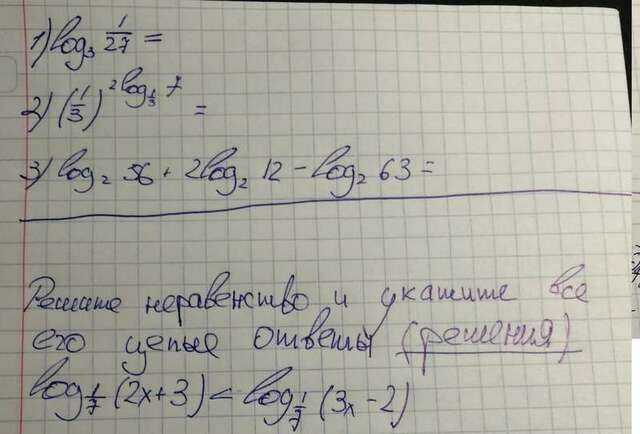 1) log₃ 1/27 =
2) (1/3)^(2log_(1/3) 7) =
3) log₂ 56 + 2log₂ 12 - log₂ 63 =
Решите неравенство и укажите все
его целые ответы (решения)
log_(1/7) (2x+3) < log_(1/7) (3x-2)